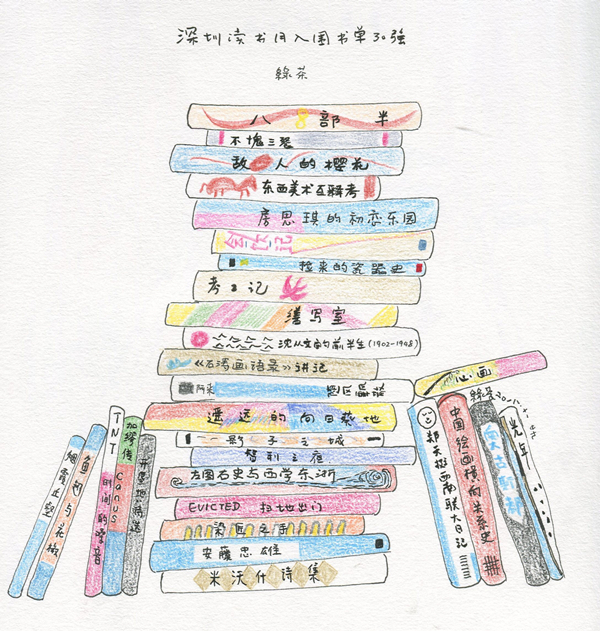 深圳读书月入围书单30強
綠茶
八部半
不愧三琴
敌人的樱花
东西美术互释考
房思琪的初恋乐园
创作记
捡来的瓷器史
考工记
谍写室
沈从文的前半生(1902-1948)
《石涛画语录》讲记
阿来
遥远的向日葵地
影子之城
智利之夜
左图右史与西学东渐
EVICTED 扫地出门
梁匠之手
安藤忠雄
米沃什诗集
烟霞丘壑
鱼翅与花椒
TNT
时间的噪音
加缪传
Camus
心·画
綠茶
郑天挺西南联大日记
中国绘画横向关系史
光年